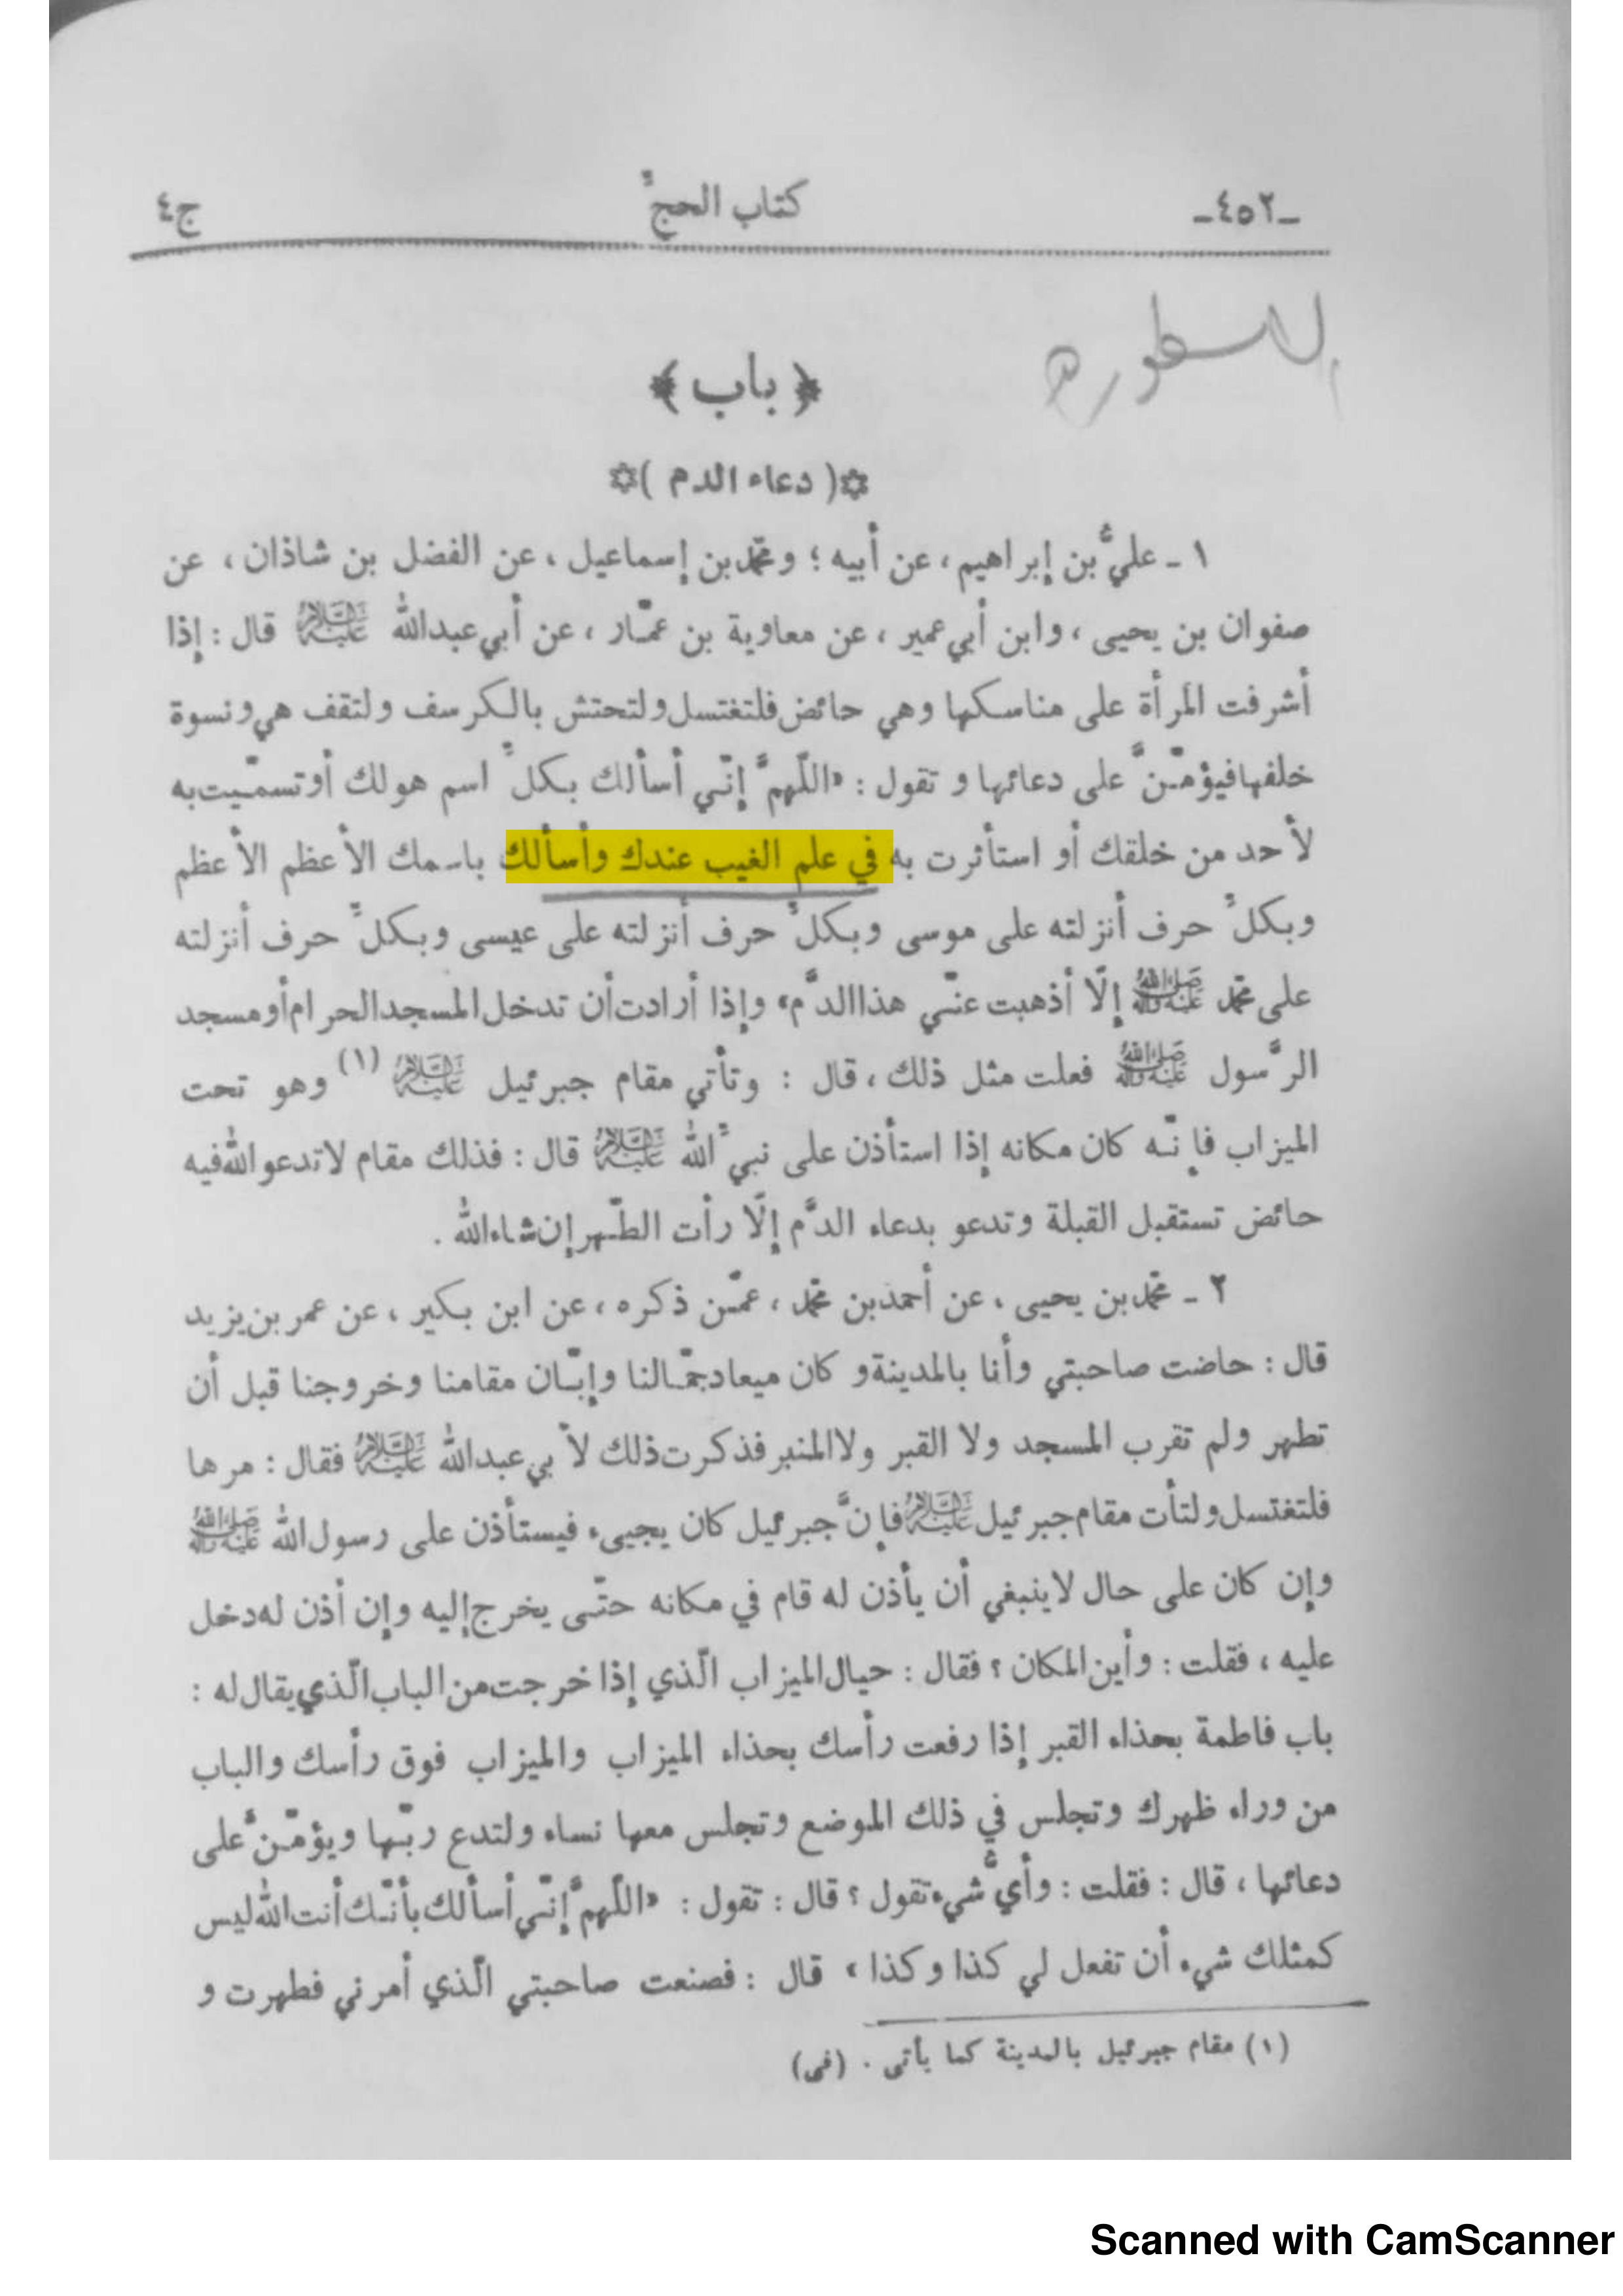 -٤٥٢- كتاب الحجّ ج٤
﴿ باب ﴾
✡( دعاء الدم )✡
١ ـ عليُّ بن إبراهيم ، عن أبيه ؛ ومحمّد بن إسماعيل ، عن الفضل بن شاذان ، عن
صفوان بن يحيى ، وابن أبي عمير ، عن معاوية بن عمّار ، عن أبي عبدالله عَلَيْهِ السَّلَامُ قال : إذا
أشرفت المرأة على مناسكها وهي حائض فلتغتسل ولتحتش بالكرسف ولتقف هي ونسوة
خلفها فيؤمّنَّ على دعائها و تقول : «اللّهمَّ إنّي أسألك بكلِّ اسم هولك أو تسمّيت به
لأحد من خلقك أو استأثرت به في علم الغيب عندك وأسألك باسمك الأعظم الأعظم
وبكلِّ حرف أنزلته على موسى وبكلِّ حرف أنزلته على عيسى وبكلِّ حرف أنزلته
على محمّد صَلَّى اللَّهُ عَلَيْهِ وَآلِهِ إلّا أذهبت عنّي هذا الدَّم» وإذا أرادت أن تدخل المسجد الحرام أو مسجد
الرَّسول صَلَّى اللَّهُ عَلَيْهِ وَآلِهِ فعلت مثل ذلك ، قال : وتأتي مقام جبرئيل عَلَيْهِ السَّلَامُ (١) وهو تحت
الميزاب فإنّه كان مكانه إذا استأذن على نبيِّ الله عَلَيْهِ السَّلَامُ قال : فذلك مقام لاتدعو الله فيه
حائض تستقبل القبلة وتدعو بدعاء الدَّم إلّا رأت الطّهر إن شاء الله .
٢ ـ محمّد بن يحيى ، عن أحمد بن محمّد ، عمّن ذكره ، عن ابن بكير ، عن عمر بن يزيد
قال : حاضت صاحبتي وأنا بالمدينة و كان ميعاد جمّالنا وإبّان مقامنا وخروجنا قبل أن
تطهر ولم تقرب المسجد ولا القبر ولا المنبر فذكرت ذلك لأبي عبدالله عَلَيْهِ السَّلَامُ فقال : مرها
فلتغتسل ولتأت مقام جبرئيل عَلَيْهِ السَّلَامُ فإنَّ جبرئيل كان يجيىء فيستأذن على رسول الله صَلَّى اللَّهُ عَلَيْهِ وَآلِهِ
وإن كان على حال لاينبغي أن يأذن له قام في مكانه حتّى يخرج إليه وإن أذن له دخل
عليه ، فقلت : وأين المكان ؟ فقال : حيال الميزاب الّذي إذا خرجت من الباب الّذي يقال له :
باب فاطمة بحذاء القبر إذا رفعت رأسك بحذاء الميزاب والميزاب فوق رأسك والباب
من وراء ظهرك وتجلس في ذلك الموضع وتجلس معها نساء ولتدع ربّها ويؤمّنَّ على
دعائها ، قال : فقلت : وأيَّ شيء تقول ؟ قال : تقول : «اللّهمَّ إنّي أسألك بأنّك أنت الله ليس
كمثلك شيء أن تفعل لي كذا وكذا» قال : فصنعت صاحبتي الّذي أمرني فطهرت و
(١) مقام جبرئيل بالمدينة كما يأتى . (فى)
Scanned with CamScanner